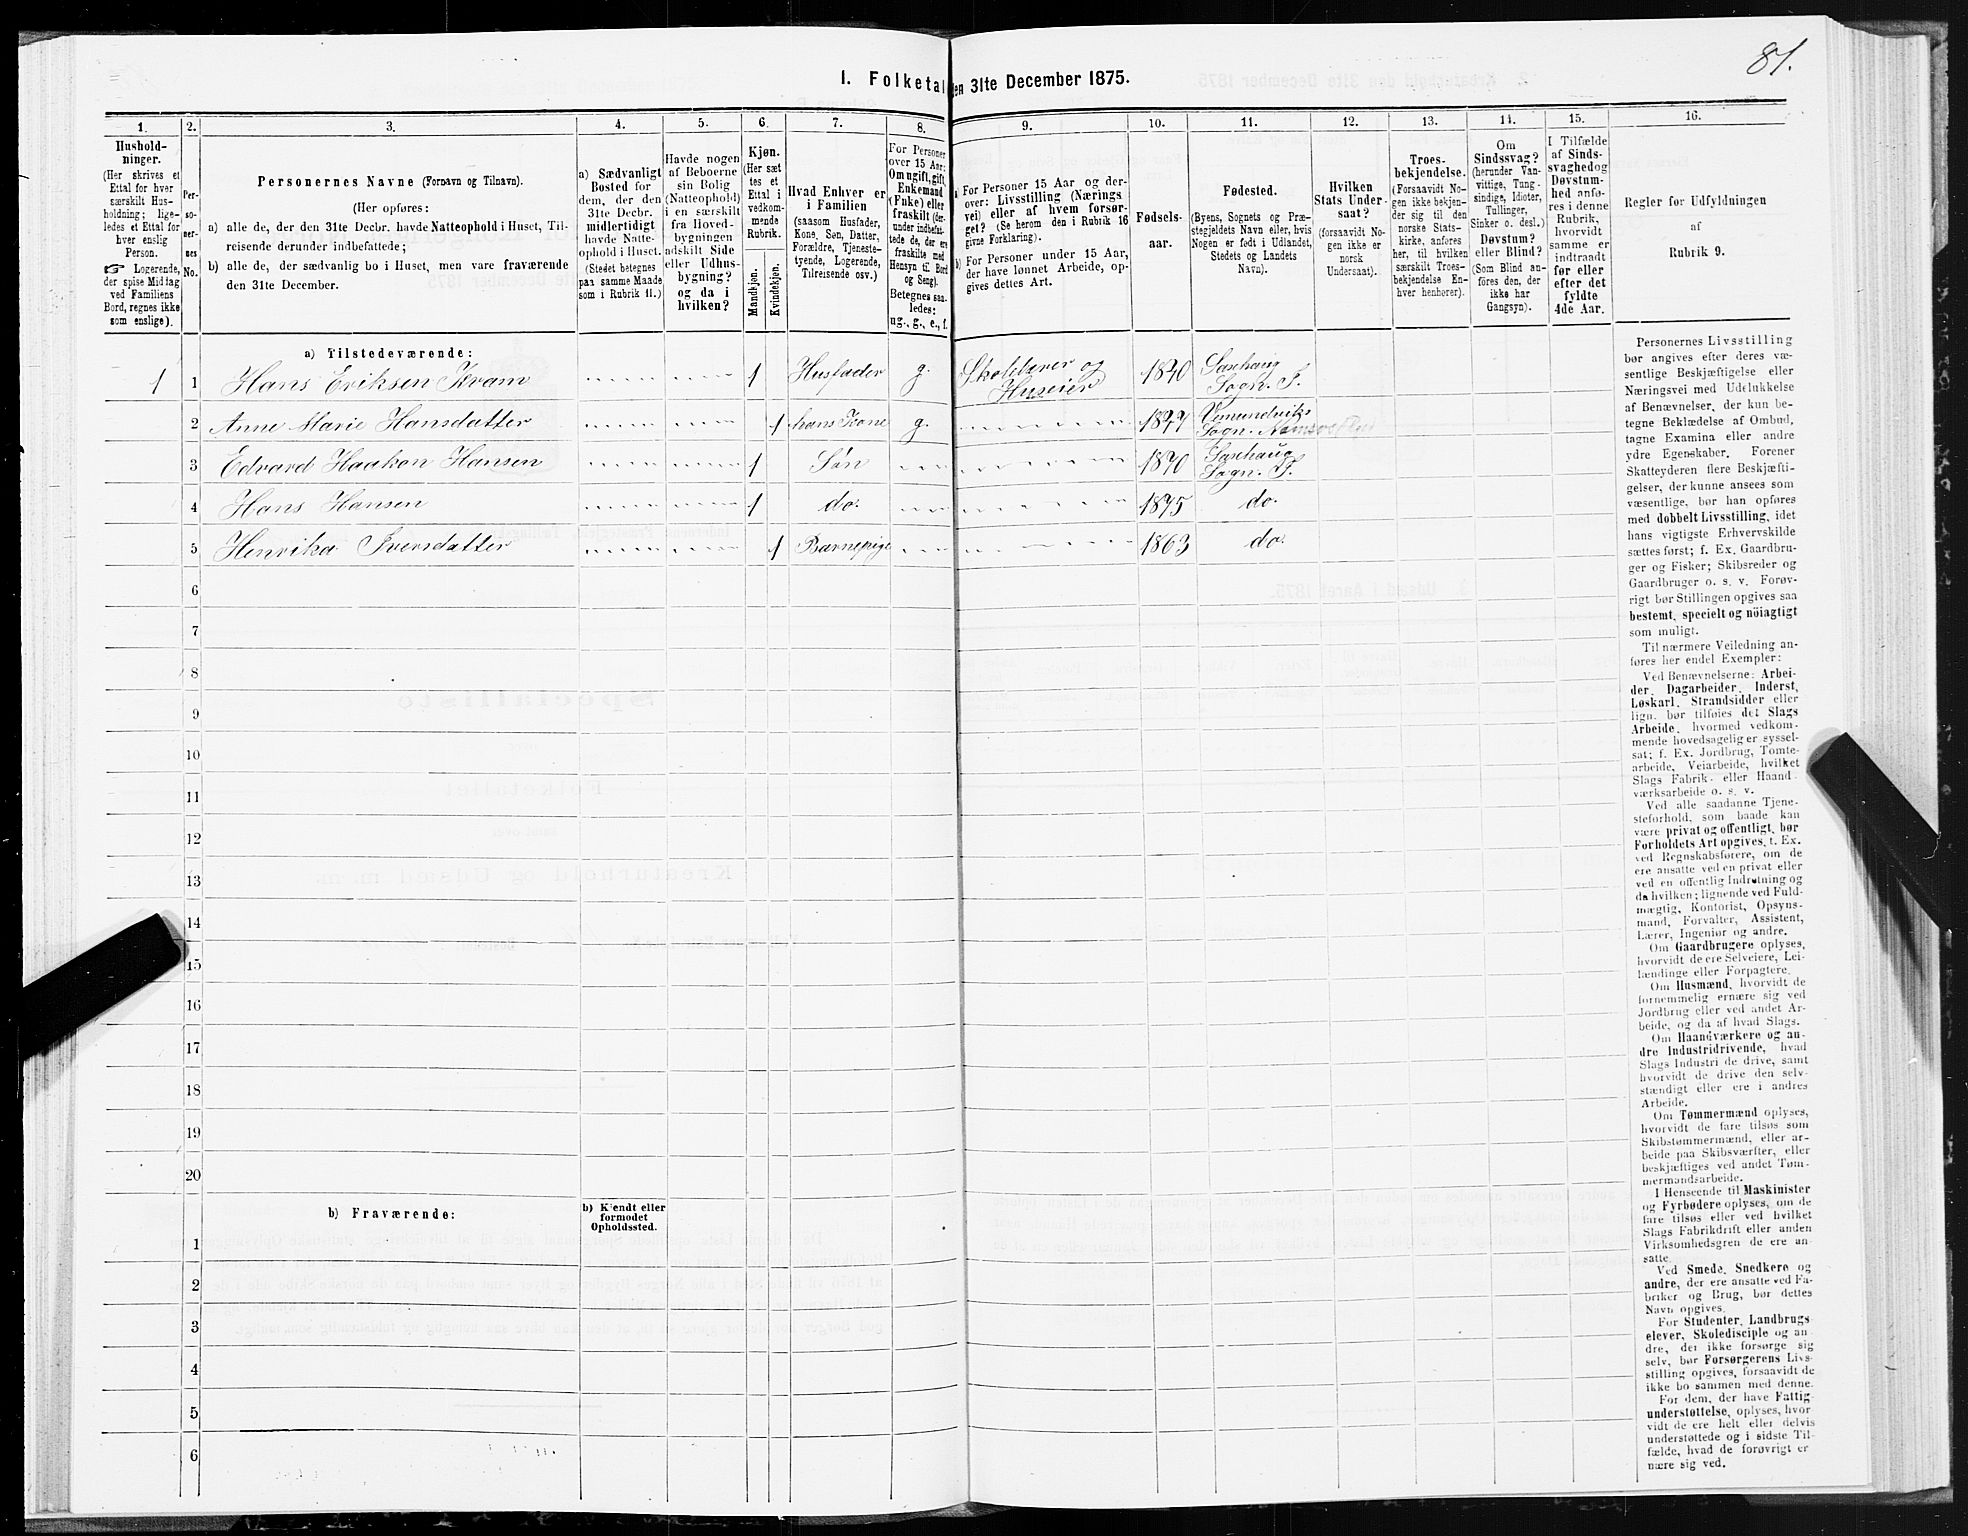 81.
I. Folketal
en 31te December 1875.
1.
2.
3.
4.
5.
6.
7.
8.
9.
10.
11.
12.
13.
14.
15.
16.
Hushold-
ninger.
(Her skrives et
Ettal for hver
særskilt Hus-
holdning; lige-
ledes et Ettal for
hver enslig
Person.
☞ Logerende,
der spise Middag
ved Familiens
Bord, regnes ikke
som enslige).
Per-
so-
ner-
nes
No.
Personernes Navne (Fornavn og Tilnavn).
(Her opføres:
a) alle de, der den 31te Decbr. havde Natteophold i Huset, Til-
reisende derunder indbefattede;
b) alle de, der sædvanlig bo i Huset, men vare fraværende
den 31te December.
a) Sædvanligt
Bosted for
dem, der den
31te Decbr.
midlertidigt
havde Natte-
ophold i Huset.
(Stedet betegnes
paa samme Maade
som i Rubrik 11.)
Havde nogen
af Beboerne
sin Bolig
(Natteophold)
i en særskilt
fra Hoved-
bygningen
adskilt Side
eller Udhus-
bygning?
og da i
hvilken?
Kjøn.
(Her sæt-
tes et
Ettal i
vedkom-
mende
Rubrik.
Mandkjøn.
Kvindekjøn.
Hvad Enhver er
i Familien
(saasom Husfader,
Kone, Søn, Datter,
Forældre, Tjeneste-
tyende, Logerende,
Tilreisende osv.)
For Personer
over 15 Aar:
Om ugift, gift,
Enkemand
(Enke) eller
fraskilt (der-
under indbefat-
tede de, der ere
fraskilte med
Hensyn til Bord
og Seng).
Betegnes saa-
ledes:
ug., g., e., f.
a) For Personer 15 Aar og der-
over: Livsstilling (Nærings-
vei) eller af hvem forsør-
get? (Se herom den i Rubrik 16
givne Forklaring).
b) For Personer under 15 Aar,
der have lønnet Arbeide, op-
gives dettes Art.
Fødsels-
aar.
Fødested.
(Byens, Sognets og Præ-
stegjeldets Navn eller, hvis
Nogen er født i Udlandet,
Stedets og Landets
Navn).
Hvilken
Stats Under-
saat?
(forsaavidt No-
gen ikke er
norsk
Undersaat).
Troes-
bekjendelse.
(Forsaavidt No-
gen ikke bekjen-
der sig til den
norske Stats-
kirke, anføres
her, til hvilken
særskilt Troes-
bekjendelse En-
hver henhører).
Om
Sindssvag?
(herunder Van-
vittige, Tung-
sindige, Idioter,
Tullinger,
Sinker o. desl.)
Døvstum?
eller Blind?
(Som Blind an-
føres den, der
ikke har
Gangsyn).
I Tilfælde
af Sinds-
svaghed og
Døvstum-
hed anfø-
res i denne
Rubrik,
hvorvidt
samme er
indtraadt
før eller
efter det
fyldte
4de Aar.
Regler for Udfyldningen
af
Rubrik 9.
a) Tilstedeværende:
1 1 Hans Eriksen Kvam 1 Husfader g. Skolelærer og Huseier 1840 Saxhaug Sogn. T.
2 Anne Marie Hansdatter 1 hans Kone g. 1844 Vemundvik Sogn.
3 Edvard Haakon Hansen 1 Søn 1870 Saxhaug Sogn. T.
4 Hans Hansen 1 do. 1875 do.
5 Henrika Iversdatter 1 Barnepige 1863 do.
6
7
8
9
10
11
12
13
14
15
16
17
18
19
20
b) Fraværende:
b) Kjendt eller
formodet
Opholdssted.
1
2
3
4
5
6
Personernes Livsstilling
bør angives efter deres væ-
sentlige Beskjæftigelse eller
Næringsvei med Udelukkelse
af Benævnelser, der kun be-
tegne Beklædelse af Ombud,
tagne Examina eller andre
ydre Egenskaber. Forener
Skatteyderen flere Beskjæfti-
gelser, der kunne ansees som
væsentlige, bør han opføres
med dobbelt Livsstilling, idet
hans vigtigste Erhvervskilde
sættes først; f. Ex. Gaardbru-
ger og Fisker; Skibsreder og
Gaardbruger o. s. v. Forøv-
rigt bør Stillingen opgives saa
bestemt, specielt og nöiagtigt
som muligt.
Til nærmere Veiledning an-
føres her endel Exempler:
Ved Benævnelserne: Arbei-
der, Dagarbeider, Inderst,
Løskarl, Strandsidder eller
lign. bør tilføies det Slags
Arbeide, hvormed vedkom-
mende hovedsagelig er syssel-
sat; f. Ex. Jordbrug, Tomte-
arbeide, Veiarbeide, hvilket
Slags Fabrik- eller Haand-
værksarbeide o. s. v.
Ved alle saadanne Tjene-
steforhold, som baade kan
være privat og offentligt, bør
Forholdets Art opgives, f. Ex.
ved Regnskabsførere, om de
ere ansatte ved en privat eller
ved en offentlig Indretning og
da hvilken; lignende ved Fuld-
mægtig, Kontorist, Opsyns-
mand, Forvalter, Assistent,
Lærer, Ingeniør og andre.
Om Gaardbrugere oplyses,
hvorvidt de ere Selveiere, Lei-
lændinge eller Forpagtere.
Om Husmænd, hvorvidt de
fornemmelig ernære sig ved
Jordbrug eller ved andet Ar-
beide, og da af hvad Slags.
Om Haandværkere og an-
dre Industridrivende, hvad
Slags Industri de drive, samt
hvorvidt de drive den selv-
stændigt eller ere i andres
Arbeide.
Om Tømmermænd oplyses,
hvorvidt de fare tilsøs som
Skibstømmermænd, eller ar-
beide paa Skibsværfter, eller
beskjæftiges ved andet Tøm-
mermandsarbeide.
I Henseende til Maskinister
og Fyrbødere oplyses, om de
fare tilsøs eller ved hvilket
Slags Fabrikdrift eller anden
Virksomhedsgren de ere an-
satte.
Ved Smede, Snedkere og
andre, der ere ansatte ved Fa-
briker og Brug, bør dettes
Navn opgives.
For Studenter, Landbrugs-
elever, Skoledisciple og an-
dre, der ikke forsørge sig
selv, bør Forsørgerens Livs-
stilling opgives, forsaavidt de
ikke bo sammen med denne.
For dem, der have Fattig-
understøttelse, oplyses, hvor-
vidt de ere helt eller delvis
understøttede og i sidste Til-
fælde, hvad de forøvrigt er-
nære sig ved.